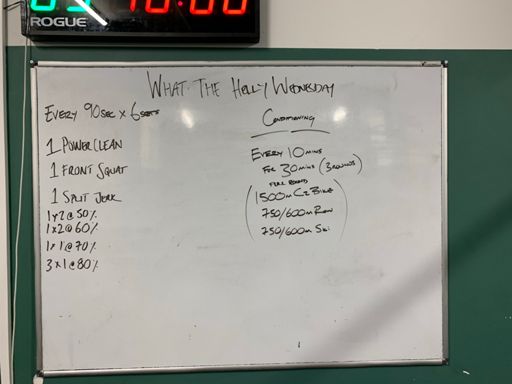 10:00
ROGUE
WHAT THE HELLY WEDNESDAY
EVERY 90SEC X 6SETS
1 POWER CLEAN
1 FRONT SQUAT
1 SPLIT JERK
1x2@50%
1x2@60%
1x1@70%
3x1@80%
CONDITIONING
EVERY 10MINS
FOR 30MINS (3ROUNDS)
FULL ROUND
1500m C2 BIKE
750/600m ROW
750/600m SKI